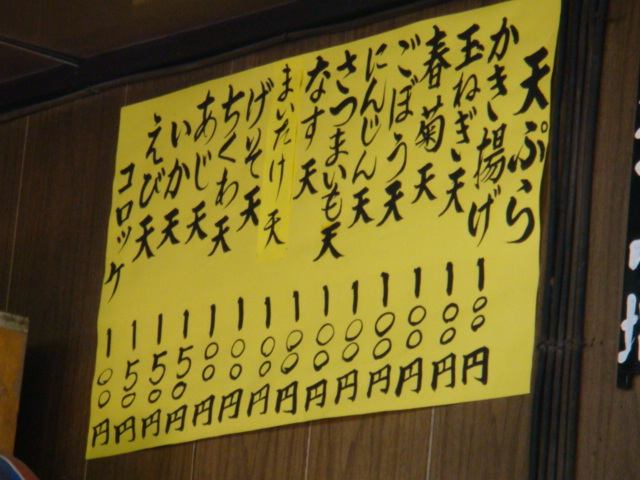 天ぷら
かき揚げ 100円
玉ねぎ天 100円
春菊天 100円
ごぼう天 100円
にんじん天 100円
さつまいも天 100円
なす天 100円
まいたけ天 100円
げそ天 100円
ちくわ天 100円
あじ天 150円
いか天 150円
えび天 150円
コロッケ 100円